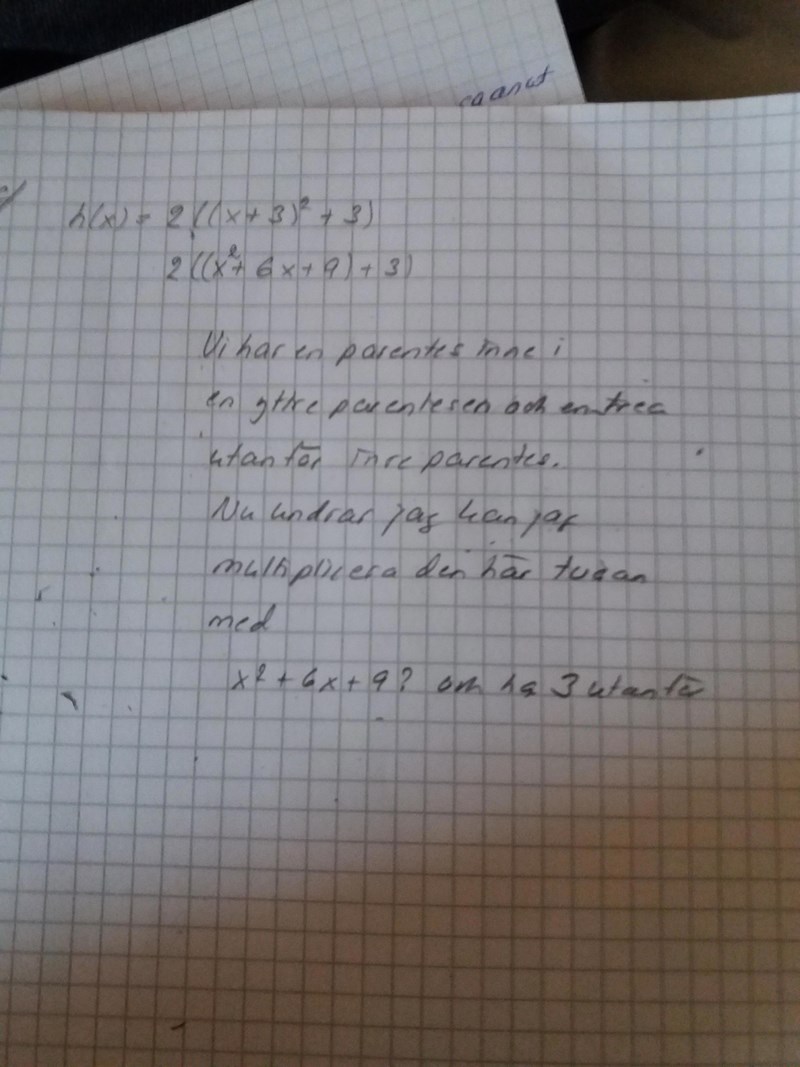 caanat
c/
h(x) = 2((x+3)² + 3)
2((x²+ 6x+9)+3)
Vi har en parentes inne i
en yttre parentesen och en trea
utanför inre parentes.
Nu undrar jag kan jag
multiplicera den här tvåan
med
x² + 6x + 9? om ha 3 utanför